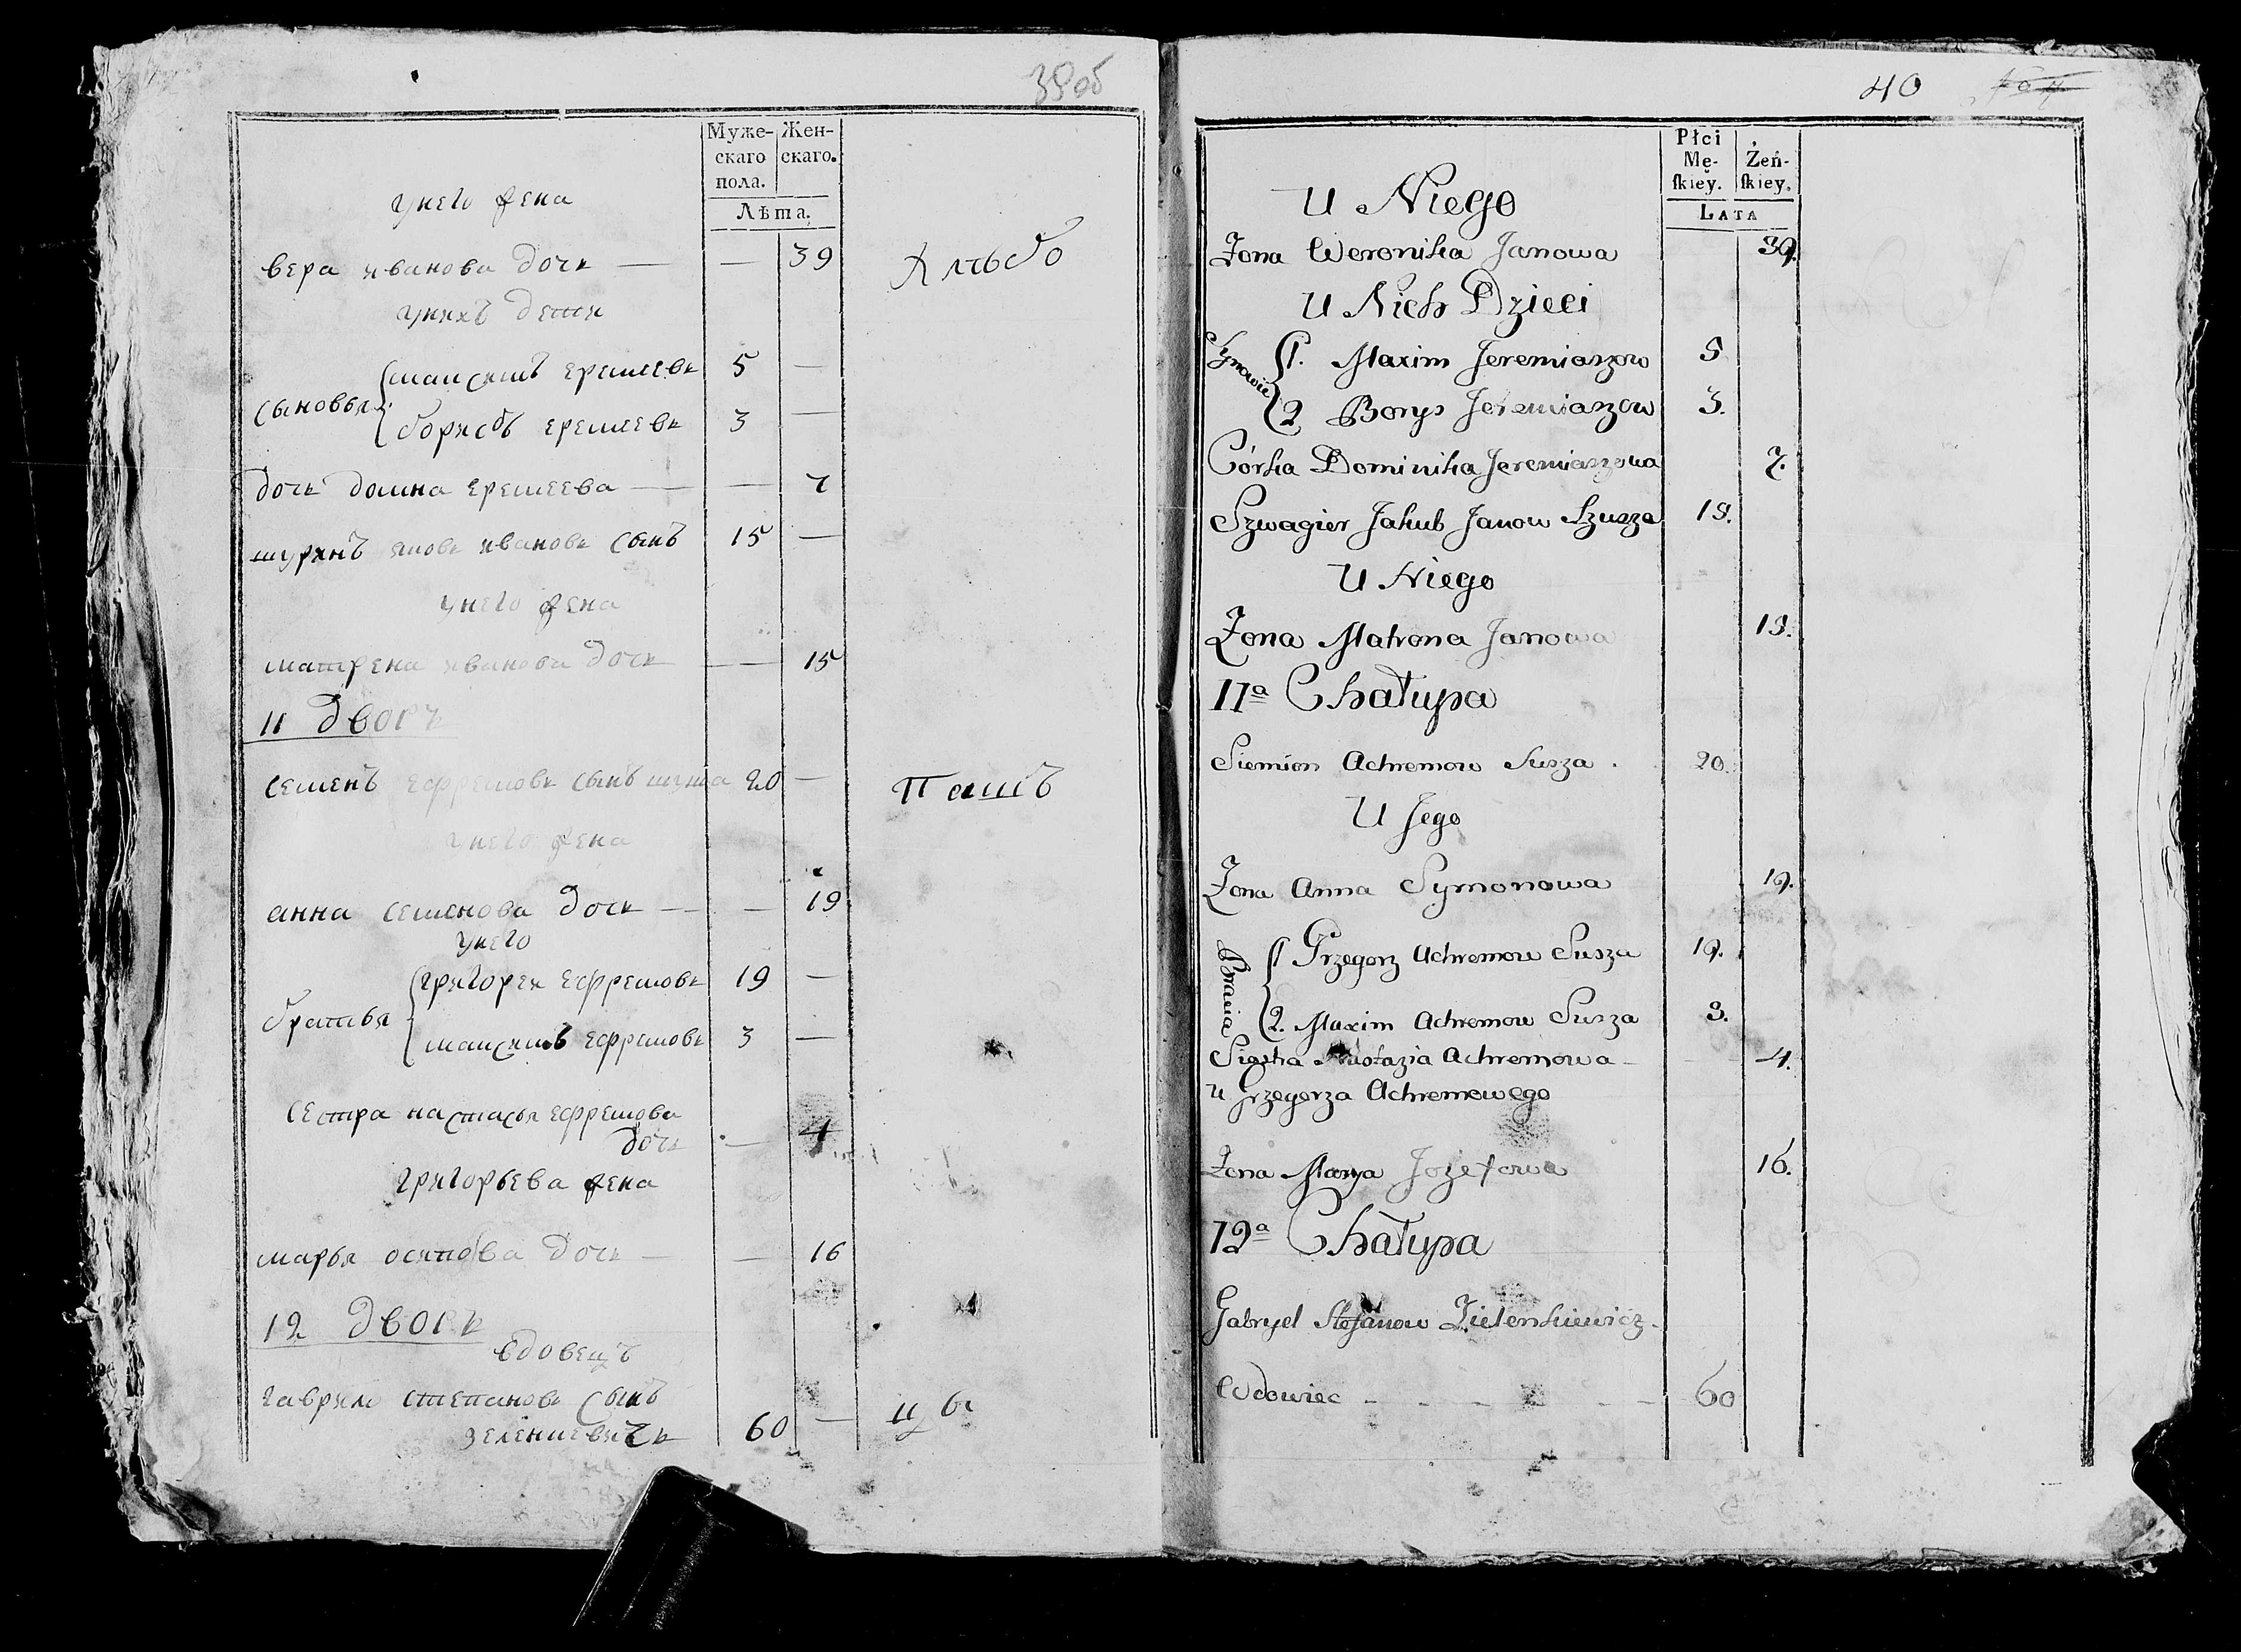 39об
Муже-
скаго
пола.
Жен-
скаго.
Лѣта.
у него жена
вера иванова дочь — — 39
у нихъ дети
сыновья
максимъ еремеевъ 5 —
борисъ еремеевъ 3 —
дочь домна еремеева — — 7
шуринъ яковъ ивановъ сынъ 15 —
у него жена
матрена иванова дочь — 15
11 дворъ
семенъ ефремовъ сынъ шуша 20 —
у него жена
анна семенова дочь — — 19
у него
братья
григорей ефремовъ 19 —
максимъ ефремовъ 3 —
сестра настасья ефремова
дочь — 4
григорьева жена
марья осипова дочь — — 16
12 дворъ
вдовецъ
гаврило степановъ сынъ
зеленкевичъ 60 —
40
Płci
Mę-
skiey.
Żeń-
skiey.
LATA
U Niego
Żona Weronika Janowa 39.
U Nich Dzieci
Synowie
1. Maxim Jeremiaszow 5
2 Borys Jeremiaszow 3.
Córka Dominika Jeremiaszowa 7.
Szwagier Jakub Janow Szusza 15.
U Niego
Żona Matrona Janowa 15.
11a Chałupa
Siemion Achremow Susza . 20.
U Jego
Żona Anna Symonowa 19.
Bracia
1 Grzegorz Achremow Susza 19.
2. Maxim Achremow Susza 3.
Siostra Nastazia Achremowa - 4.
u Grzegorza Achremowego
Żona Marya Jozefowa 16.
12a Chałupa
Gabryel Stefanow Zielenkiewicz.
Wdowiec - - - - - - 60